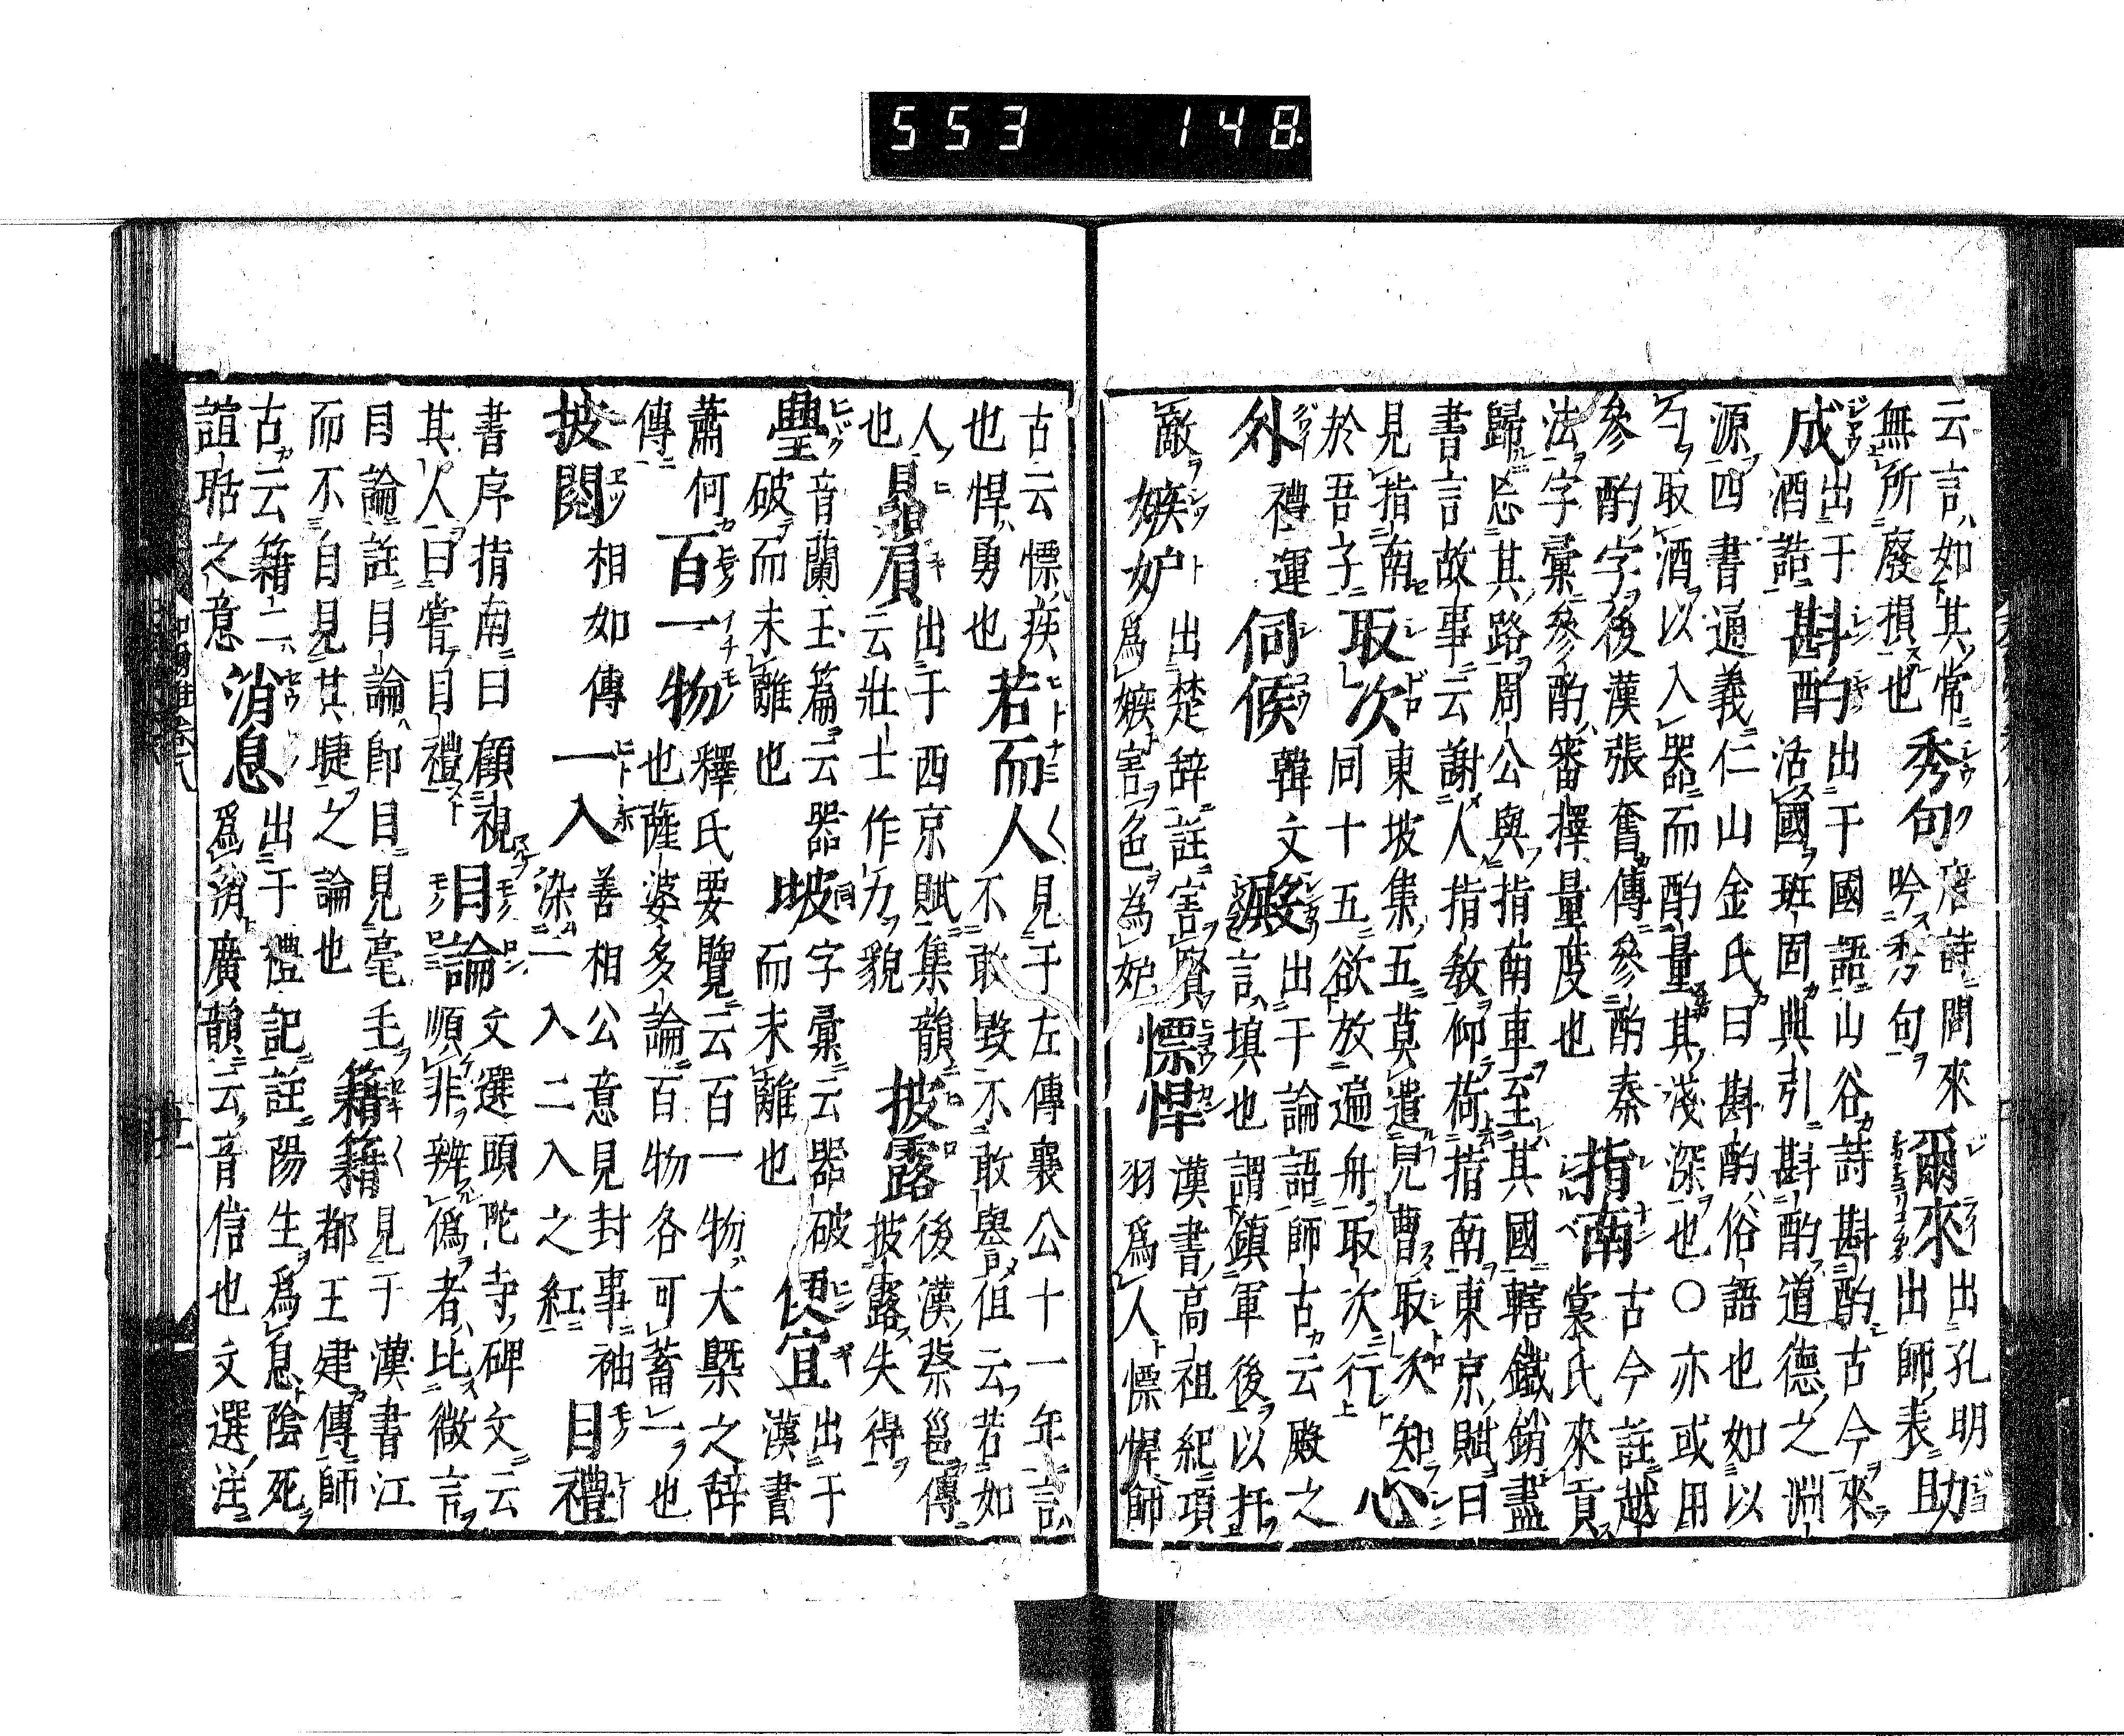 云言如其常無所廢損也 秀句 唐詩間來吟秀句 爾來 出孔明出師表 助
成 出于酒誥 斟酌 出于國語山谷詩斟酌古今來活國班固典引斟酌道德之淵
源四書通義仁山金氏曰斟酌俗語也如以勺取酒以入器而酌量其淺深也〇亦或用
參酌字後漢張奮傳參酌秦法字彙參酌審擇量度也 指南 古今註越裳氏來貢
歸忘其路周公與指南車至其國轄鐵銷盡書言故事云謝人指教仰荷指南東京賦曰
見指南於吾子 取次 東坡集五莫遣兒曹取次知同十五欲放遍舟取次行 心
外 禮運 伺候 韓文 殿 出于論語師古云殿之言填也謂鎮軍後以扞
敵 嫉妒 出楚辞註害賢爲嫉害色為妒 慓悍 漢書高祖紀項羽爲人慓悍師
古云慓疾也悍勇也 若而人 見于左傳襄公十一年言不敢毀不敢譽但云若如
人也 贔屓 出于西京賦集韻云壯士作力貌 披露 後漢蔡邕傳披露失得
璺 音蘭玉篇云器破而未離也 字彙云器破而未離也 便宜 出于漢書
蕭何傳 百一物 釋氏要覽云百一物大槩之辞也薩婆多論百物各可蓄一也
披閲 相如傳 一入 善相公意見封事袖染一入二入之紅 目禮
書序指南曰顧視其人曰嘗目禮 目論 文選頭陀寺碑文云順非辨偽者比微言
目論註目論即目見毫毛而不自見其睫之論也 籍籍 見于漢書江都王建傳師
古云籍二諠聒之意 消息 出于禮記註陽生爲息陰死爲消廣韻云音信也文選注
553 148